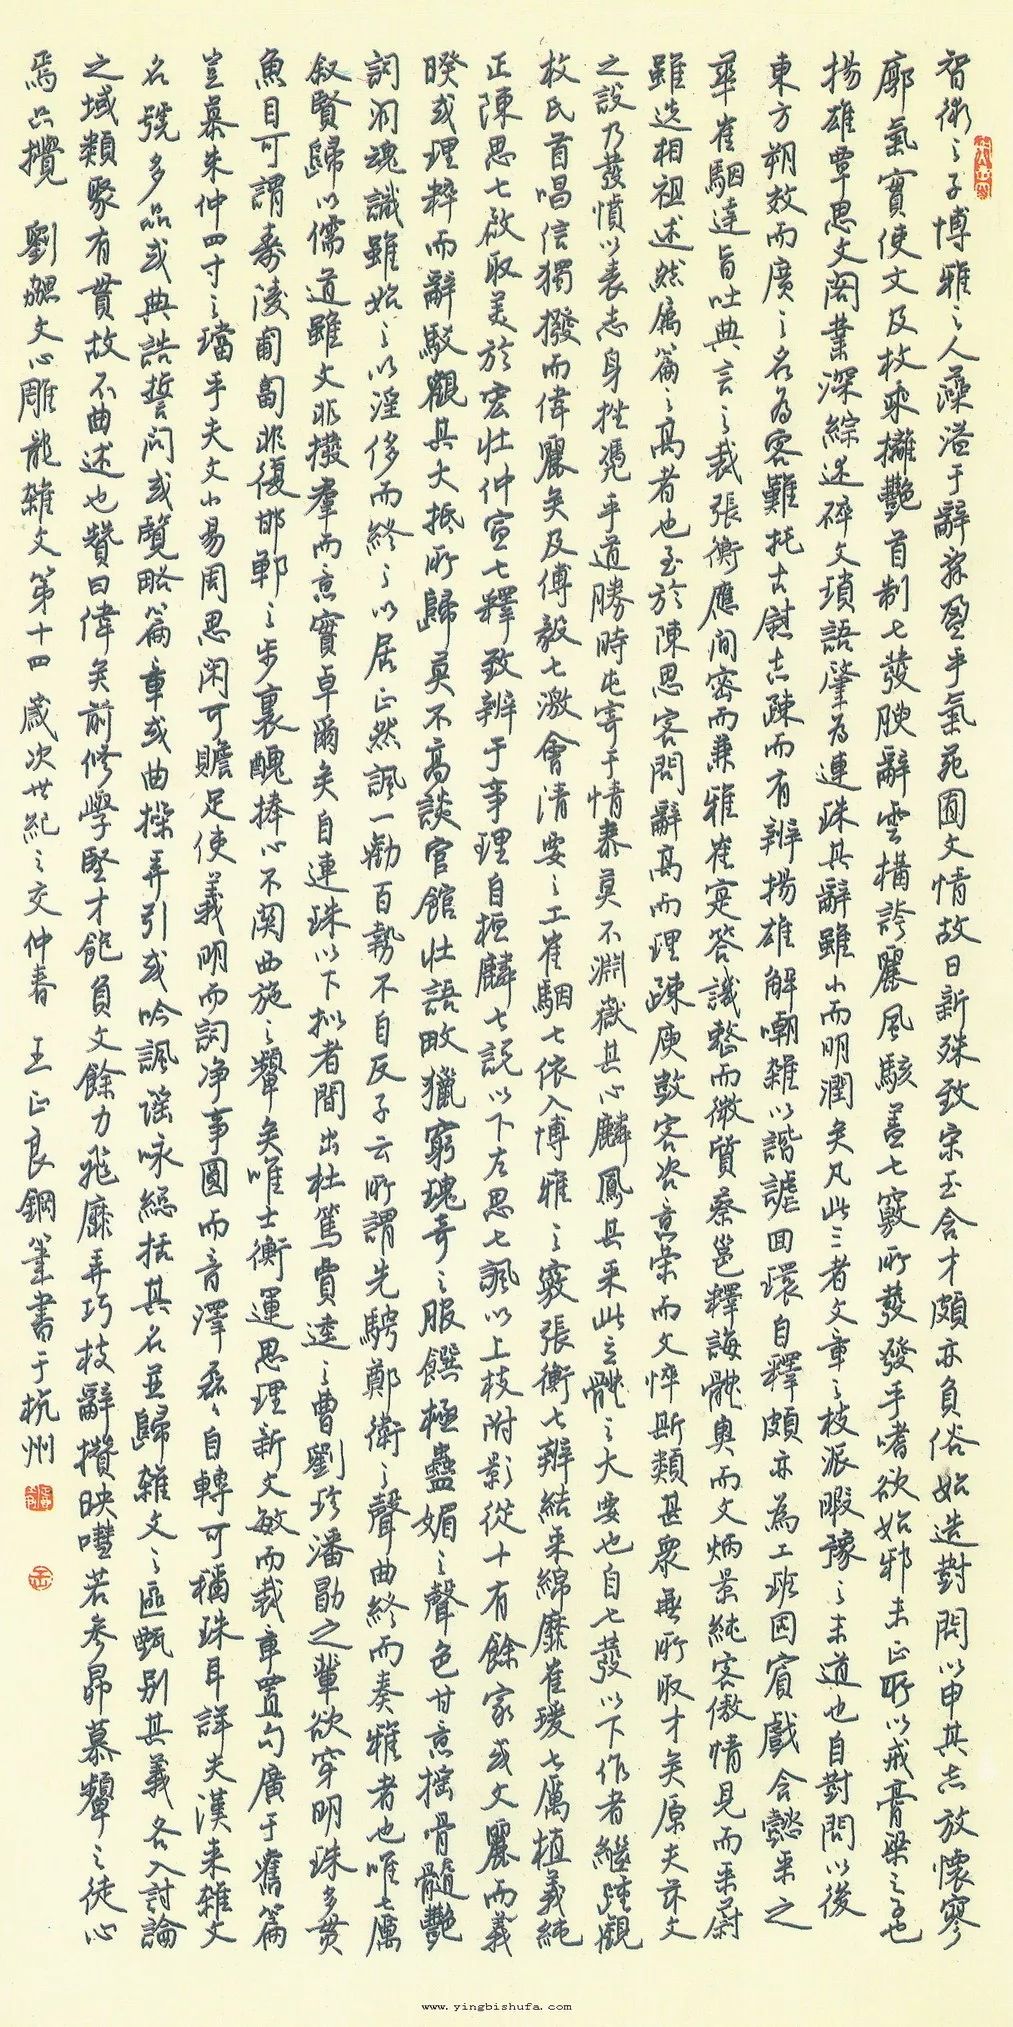 智術之子博雅之人藻溢于辭辭盈乎氣苑囿文情故日新殊致宋玉含才頗亦負俗始造對問以申其志放懷寥
廓氣實使文及枚乘攡艷首制七發腴辭雲構誇麗風駭蓋七竅所發發乎嗜欲始邪末正所以戒膏粱之子也
揚雄覃思文閣業深綜述碎文瑣語肇為連珠其辭雖小而明潤矣凡此三者文章之枝派暇豫之末道也自對問以後
東方朔效而廣之名為客難托古慰志疎而有辨揚雄解嘲雜以諧謔回環自釋頗亦為工班固賓戲含懿采之
華崔駰達旨吐典言之裁張衡應間密而兼雅崔寔答譏整而微質蔡邕釋誨體奧而文炳景純客傲情見而采蔚
雖迭相祖述然屬篇之高者也至於陳思客問辭高而理疎庾敱客咨意榮而文悴斯類甚衆無所取才矣原夫茲文
之設乃發憤以表志身挫憑乎道勝時屯寄于情泰莫不淵嶽其心麟鳳其采此立體之大要也自七發以下作者繼踵觀
枚氏首唱信獨撥而偉麗矣及傅毅七激會清要之工崔駰七依入博雅之竅張衡七辨結采綿靡崔瑗七厲植義純
正陳思七啟取美於宏壯仲宣七釋致辨于事理自桓麟七說以下左思七諷以上枝附影從十有餘家或文麗而義
暌或理粹而辭駁觀其大抵所歸莫不高談宮館壯語畋獵窮瑰奇之服饌極蠱媚之聲色甘意搖骨髓艷
詞洞魂識雖始之以淫侈而終之以居正然諷一勸百勢不自反子云所謂先騁鄭衛之聲曲終而奏雅者也唯七厲
叙賢歸以儒道雖文非撥群而意實卓爾矣自連珠以下擬者間出杜篤賈逵之曹劉珍潘勖之輩欲穿明珠多貫
魚目可謂壽陵匍匐非復邯鄲之步裏醜捧心不関西施之顰矣唯士衡運思理新文敏而裁章置句廣于舊篇
豈慕朱仲四寸之璫乎夫文小易周思閑可贍足使義明而詞净事圓而音澤磊磊自轉可稱珠耳詳夫漢来雜文
名號多品或典誥誓問或覽略篇章或曲操弄引或吟諷謠咏總括其名並歸雜文之區甄别其義各入討論
之域類聚有貫故不曲述也贊曰偉矣前修學堅才飽負文餘力飛靡弄巧枝辭攢映嚖若參昴慕顰之徒心
焉祇攪 劉勰文心雕龍雜文第十四 歲次世紀之交仲春 王正良鋼筆書于杭州
www.yingbishufa.com